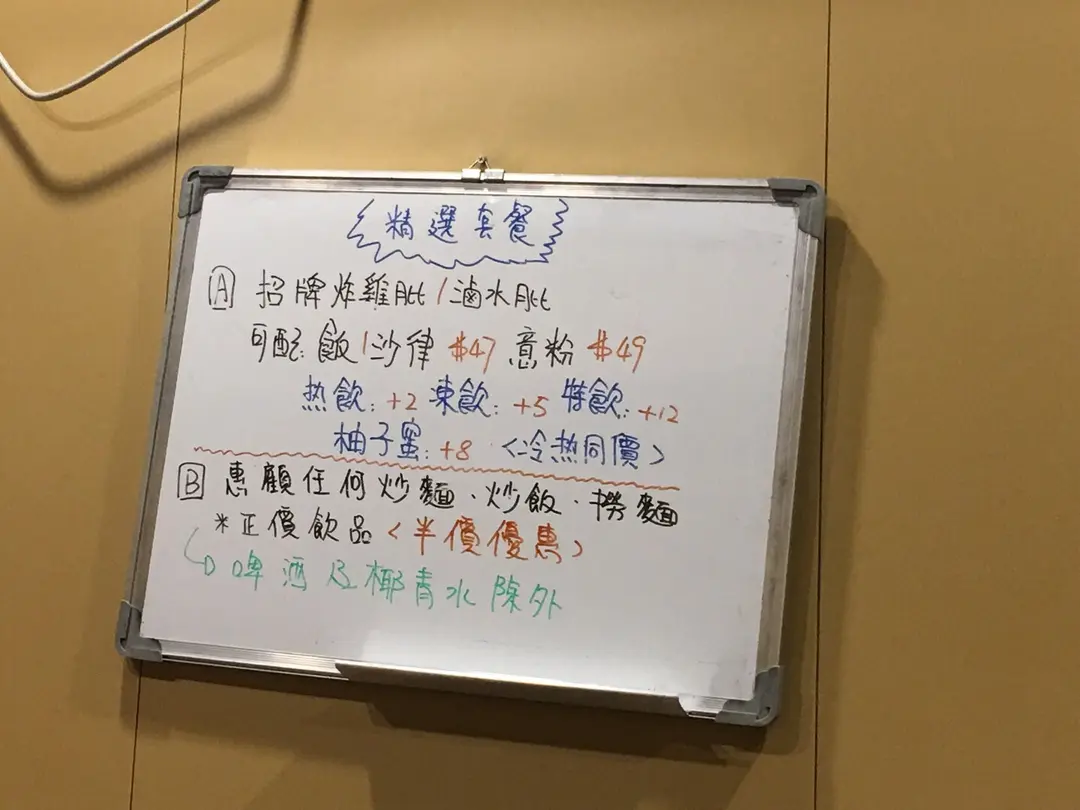 精選套餐
A 招牌炸雞肶/滷水肶
可配: 飯/沙律 $47 意粉 $49
热飲: +2 凍飲: +5 特飲: +12
柚子蜜: +8 <冷热同價>
B 惠顧任何炒麵、炒飯、撈麵
*正價飲品<半價優惠>
啤酒及椰青水除外